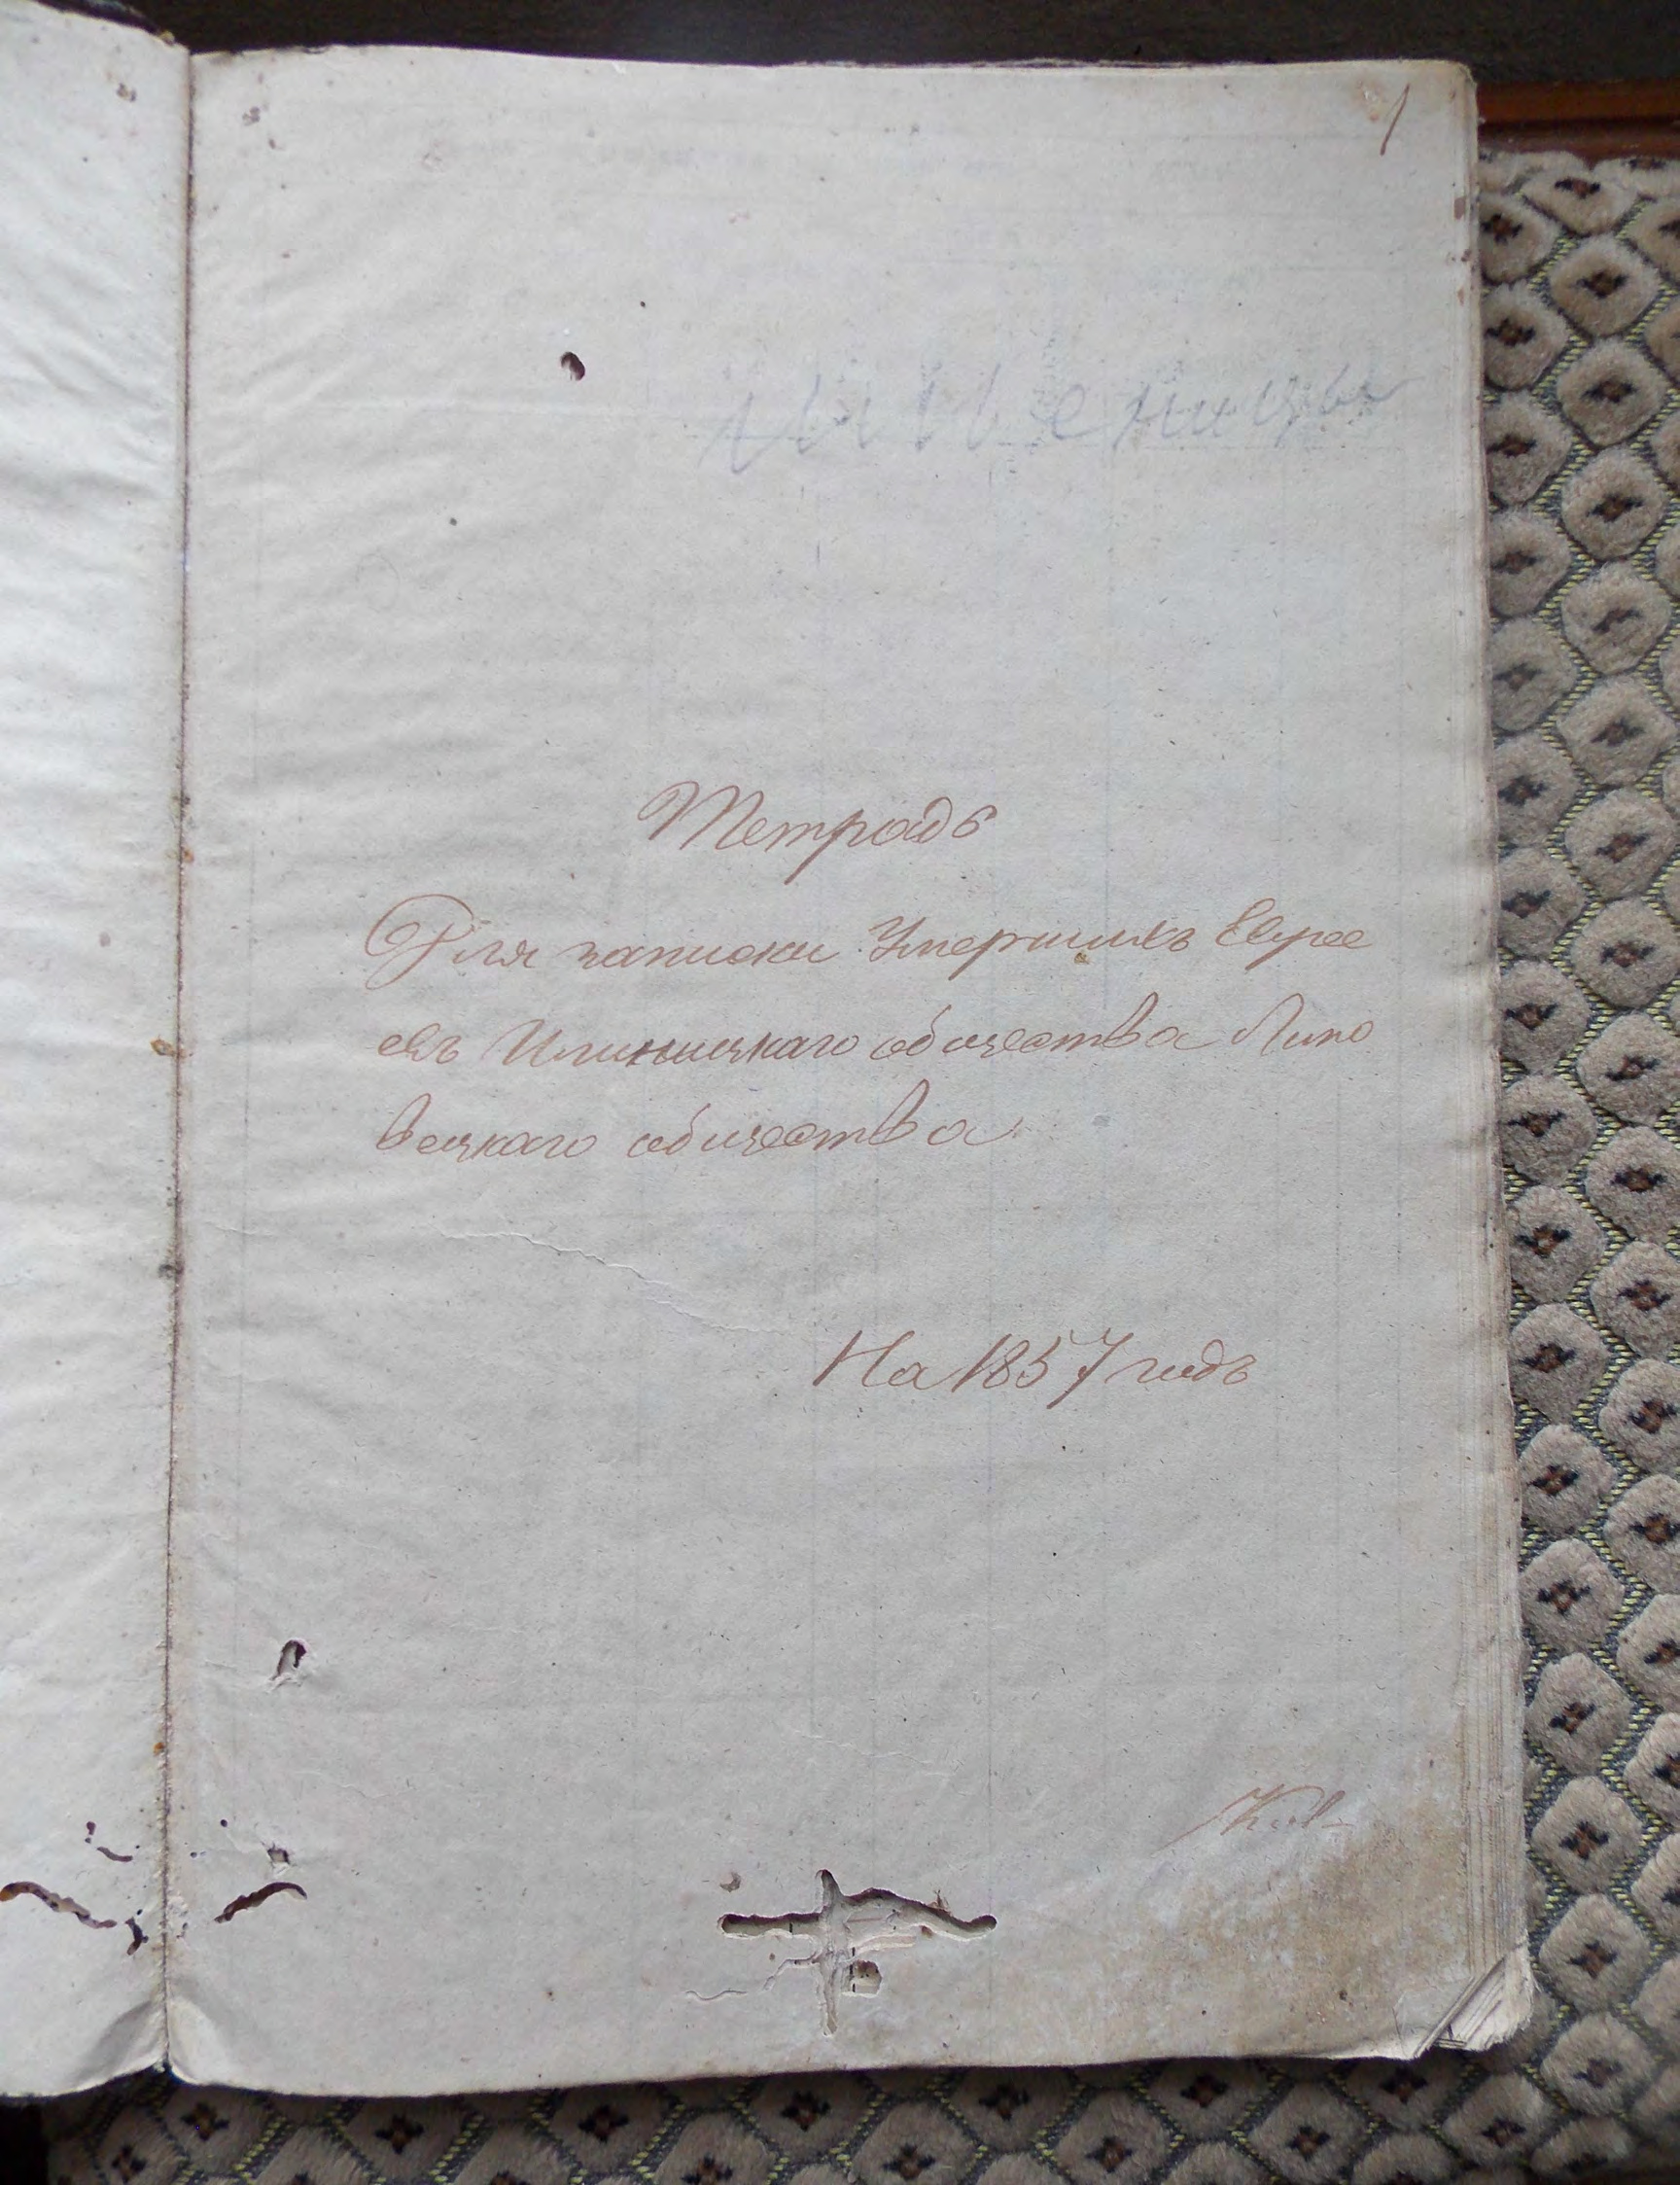 1
Тетрадь
Для записки Умершихъ Еврее
евъ Илинецкаго общества Липо
вецкаго общества
На 1857 годъ